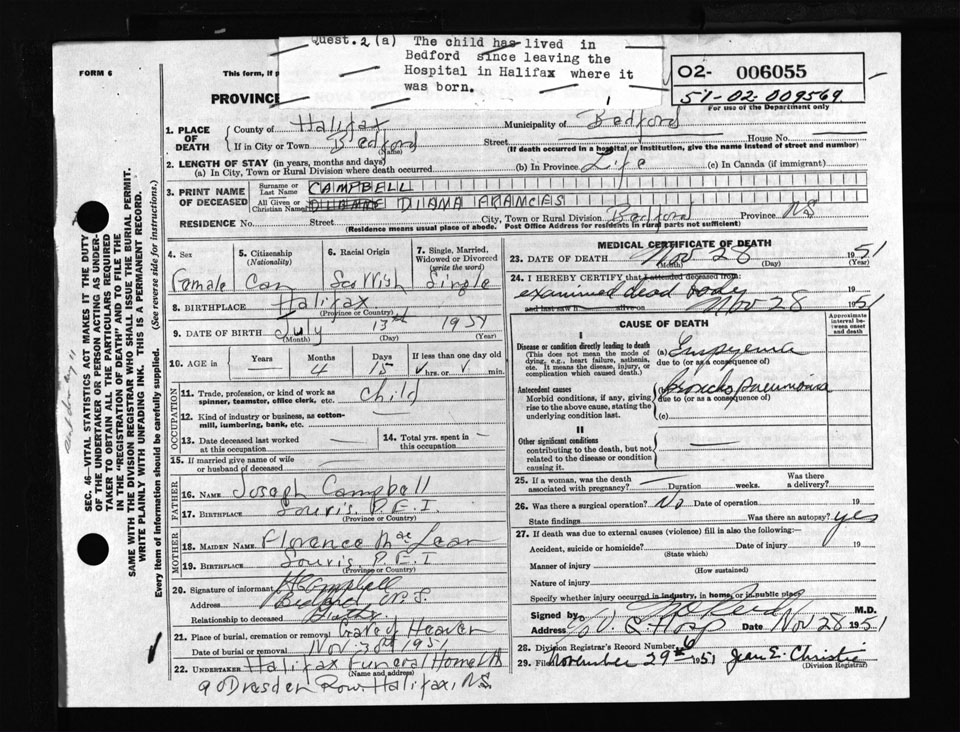 Quest. 2 (a) The child has lived in
Bedford since leaving the
Hospital in Halifax where it
was born.
FORM 6
This form,
PROVINCE
02- 006055
51-02-009569
For use of the Department only
1. PLACE OF DEATH
County of Halifax Municipality of Bedford
If in City or Town Bedford Street House No.
(Name) (If death occurred in a hospital or institution, give the name instead of street and number)
2. LENGTH OF STAY (in years, months and days)
(a) In City, Town or Rural Division where death occurred (b) In Province Life (c) In Canada (if immigrant)
3. PRINT NAME OF DECEASED
Surname or Last Name CAMPBELL
All Given or Christian Names DIANA FRANCES
RESIDENCE No. Street City, Town or Rural Division Bedford Province NS
(Residence means usual place of abode. Post Office Address for residents in rural parts not sufficient)
4. Sex 5. Citizenship (Nationality) 6. Racial Origin 7. Single, Married, Widowed or Divorced (write the word)
Female Can Scottish Single
8. BIRTHPLACE Halifax
(Province or Country)
9. DATE OF BIRTH July 13th 1951
(Month) (Day) (Year)
10. AGE in Years Months Days If less than one day old
— 4 15 hrs. or min.
OCCUPATION
11. Trade, profession, or kind of work as spinner, teamster, office clerk, etc. Child
12. Kind of industry or business, as cotton-mill, lumbering, bank, etc. —
13. Date deceased last worked at this occupation — 14. Total yrs. spent in this occupation —
15. If married give name of wife or husband of deceased —
FATHER
16. NAME Joseph Campbell
17. BIRTHPLACE Souris P.E.I.
(Province or Country)
MOTHER
18. MAIDEN NAME Florence MacLean
19. BIRTHPLACE Souris P.E.I
(Province or Country)
20. Signature of informant Campbell
Address Bedford N.S.
Relationship to deceased
21. Place of burial, cremation or removal Gate of Heaven
Date of burial or removal Nov 30th 1951
22. UNDERTAKER Halifax Funeral Home Ltd
(Name and address)
9 Dresden Row. Halifax, N.S.
MEDICAL CERTIFICATE OF DEATH
23. DATE OF DEATH Nov 28 1951
(Month) (Day) (Year)
24. I HEREBY CERTIFY that I attended deceased from:
examined dead body
and last saw h alive on Nov 28 1951
CAUSE OF DEATH
Approximate interval between onset and death
I
Disease or condition directly leading to death
(This does not mean the mode of dying, e.g., heart failure, asthenia, etc. It means the disease, injury, or complication which caused death.)
(a) Empyema
due to (or as a consequence of)
Antecedent causes
Morbid conditions, if any, giving rise to the above cause, stating the underlying condition last.
(b) Broncho pneumonia
due to (or as a consequence of)
(c)
II
Other significant conditions
contributing to the death, but not related to the disease or condition causing it.
25. If a woman, was the death associated with pregnancy? Duration weeks. Was there a delivery?
26. Was there a surgical operation? No Date of operation 19
State findings Was there an autopsy? yes
27. If death was due to external causes (violence) fill in also the following:—
Accident, suicide or homicide? Date of injury 19
(State which)
Manner of injury
(How sustained)
Nature of injury
Specify whether injury occurred in industry, in home, or in public place
Signed by M.D.
Address V G Hosp Date Nov 28 1951
28. Division Registrar's Record Number 6
29. Filed November 29th 1951 Jean E. Christie
(Division Registrar)
SEC. 46—VITAL STATISTICS ACT MAKES IT THE DUTY
OF THE UNDERTAKER OR PERSON ACTING AS UNDER-
TAKER TO OBTAIN ALL THE PARTICULARS REQUIRED
IN THE "REGISTRATION OF DEATH" AND TO FILE THE
SAME WITH THE DIVISION REGISTRAR WHO SHALL ISSUE THE BURIAL PERMIT.
WRITE PLAINLY WITH UNFADING INK. THIS IS A PERMANENT RECORD.
Every item of information should be carefully supplied. (See reverse side for instructions.)